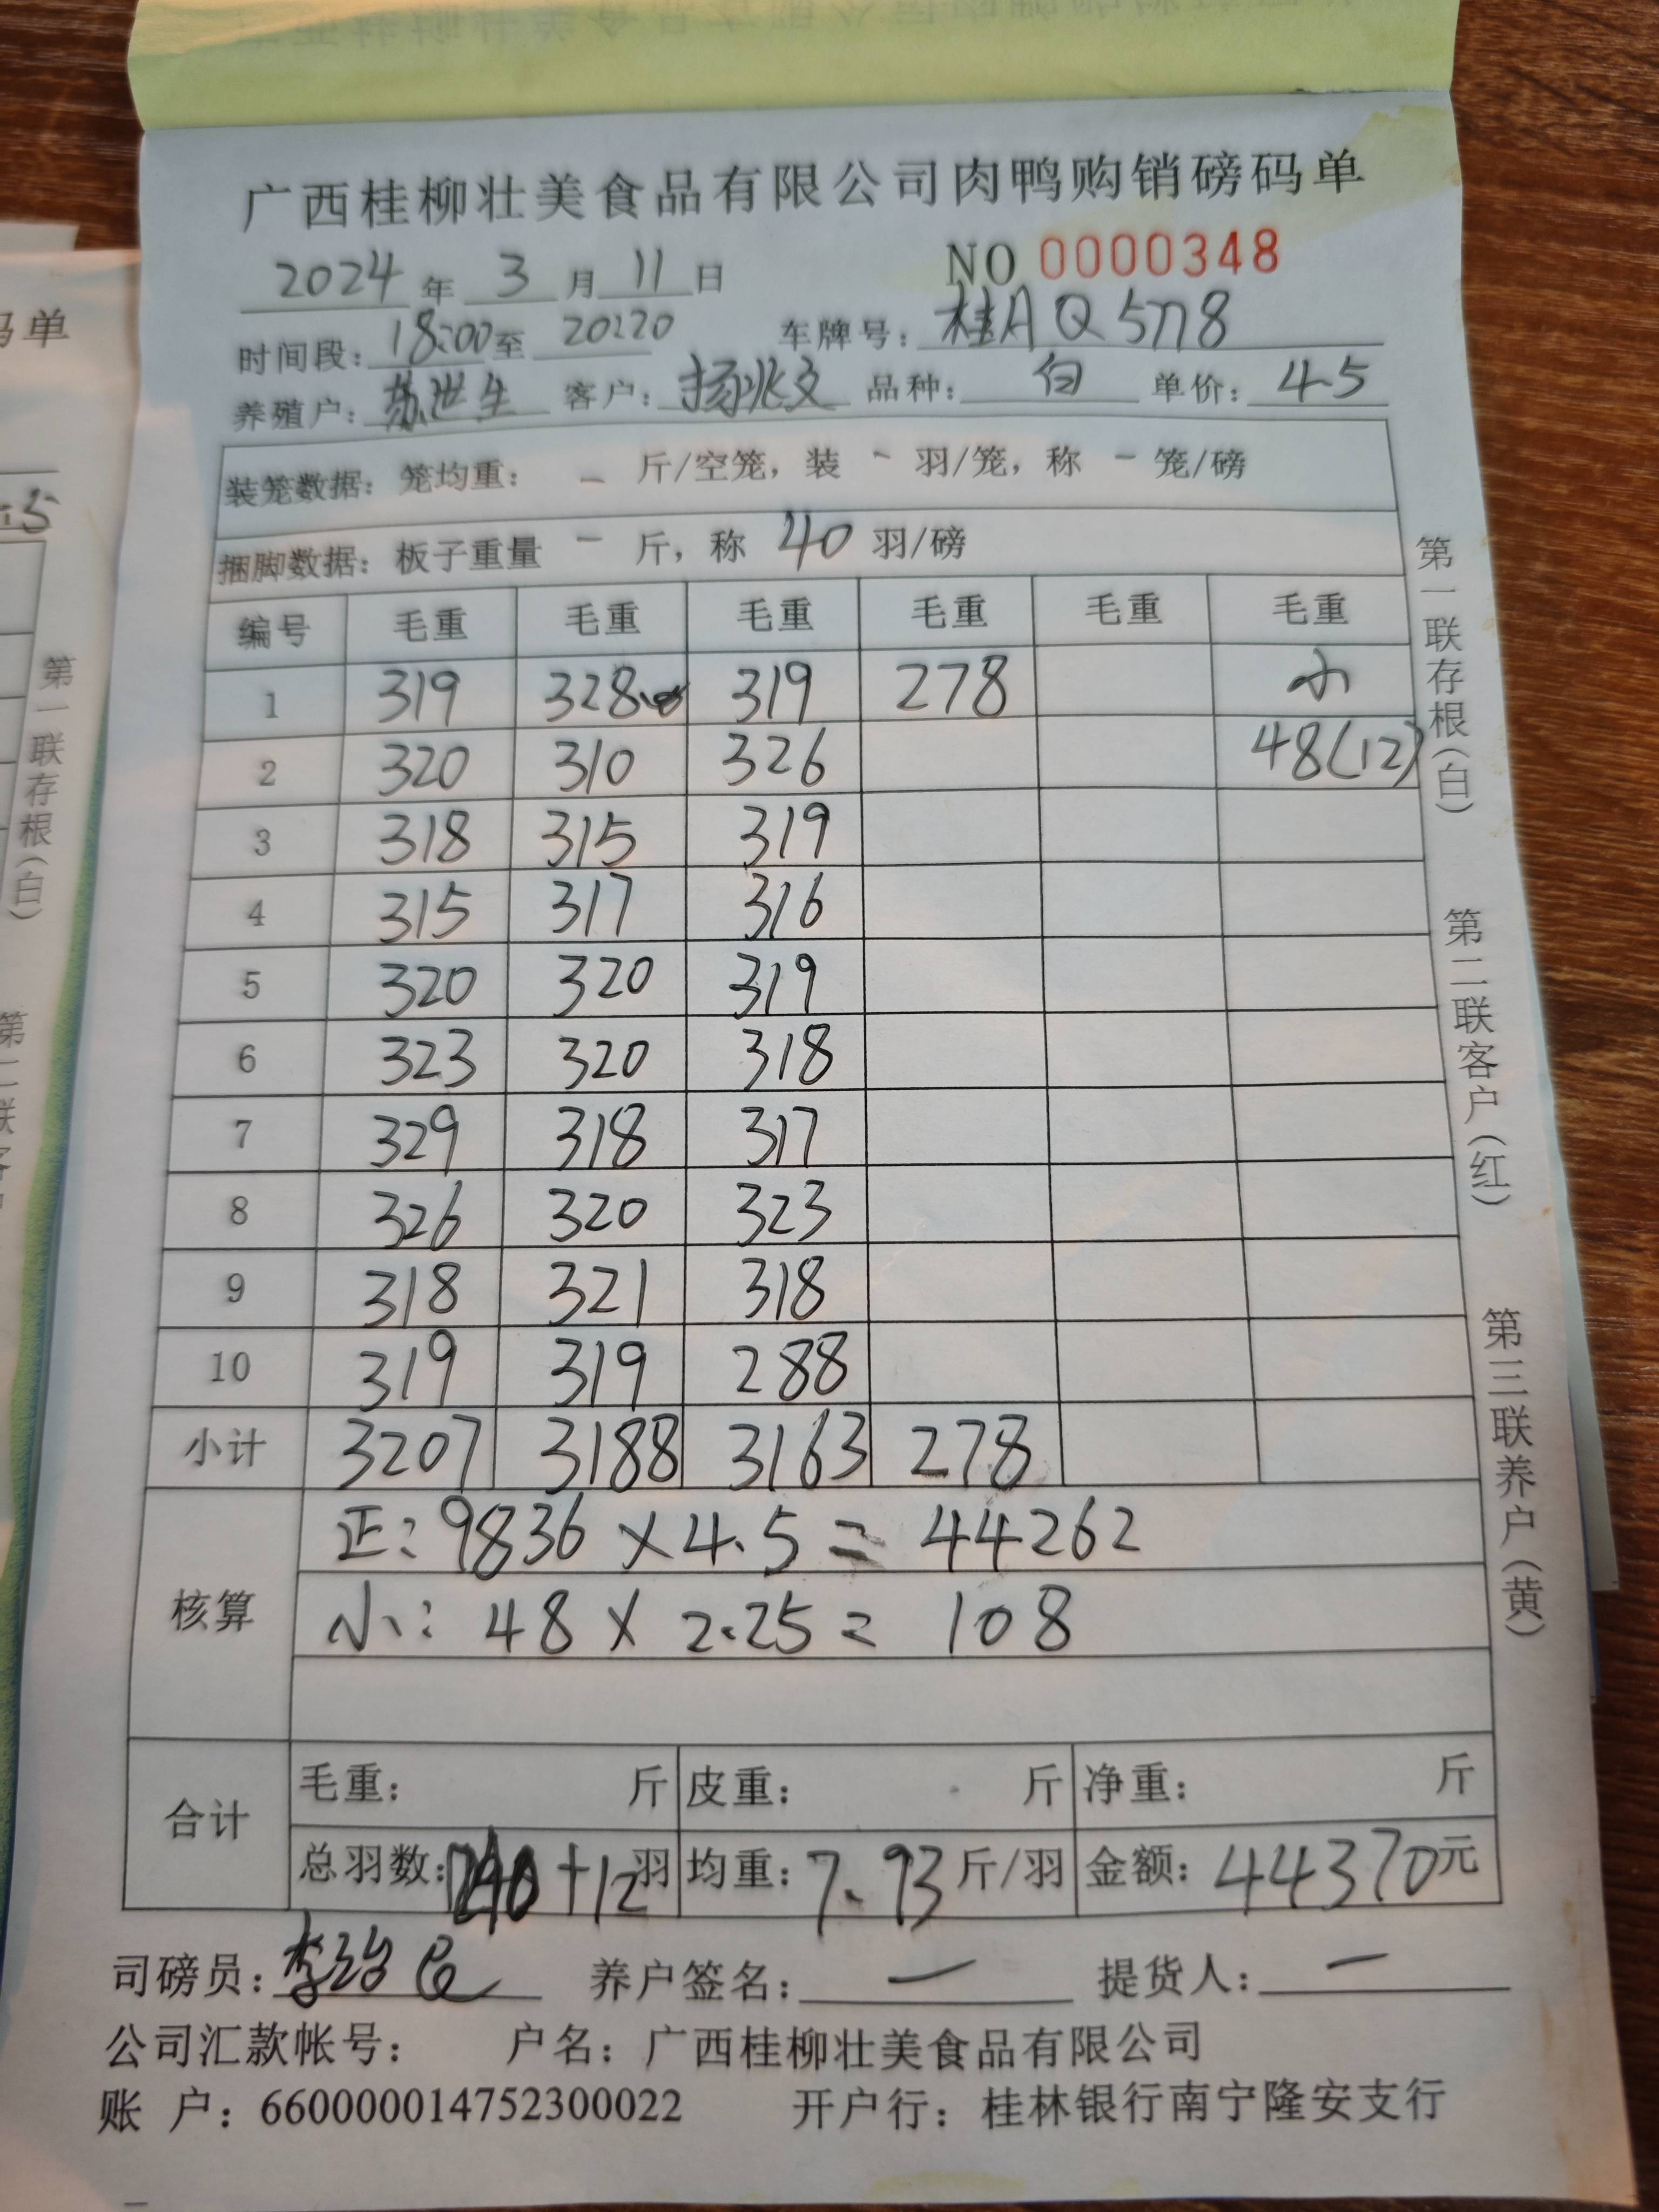 广西桂柳壮美食品有限公司肉鸭购销磅码单
2024年3月11日 NO 0000348
时间段：18:00至20:20 车牌号：桂AQ5778
养殖户：苏世生 客户：扬兆文 品种：白 单价：4.5
装笼数据：笼均重：- 斤/空笼，装 - 羽/笼，称 - 笼/磅
捆脚数据：板子重量 - 斤，称 40 羽/磅
编号 毛重 毛重 毛重 毛重 毛重 毛重
1 319 328 319 278 小
2 320 310 326 48(12)
3 318 315 319
4 315 317 316
5 320 320 319
6 323 320 318
7 329 318 317
8 326 320 323
9 318 321 318
10 319 319 288
小计 3207 3188 3163 278
核算
正：9836×4.5=44262
小：48×2.25=108
合计
毛重： 斤 皮重： 斤 净重： 斤
总羽数：+12羽 均重：7.93斤/羽 金额：44370元
司磅员：李 养户签名：— 提货人：—
公司汇款帐号： 户名：广西桂柳壮美食品有限公司
账 户：660000014752300022 开户行：桂林银行南宁隆安支行
第一联存根（白）
第二联客户（红）
第三联养户（黄）
码单
第一联存根（白）